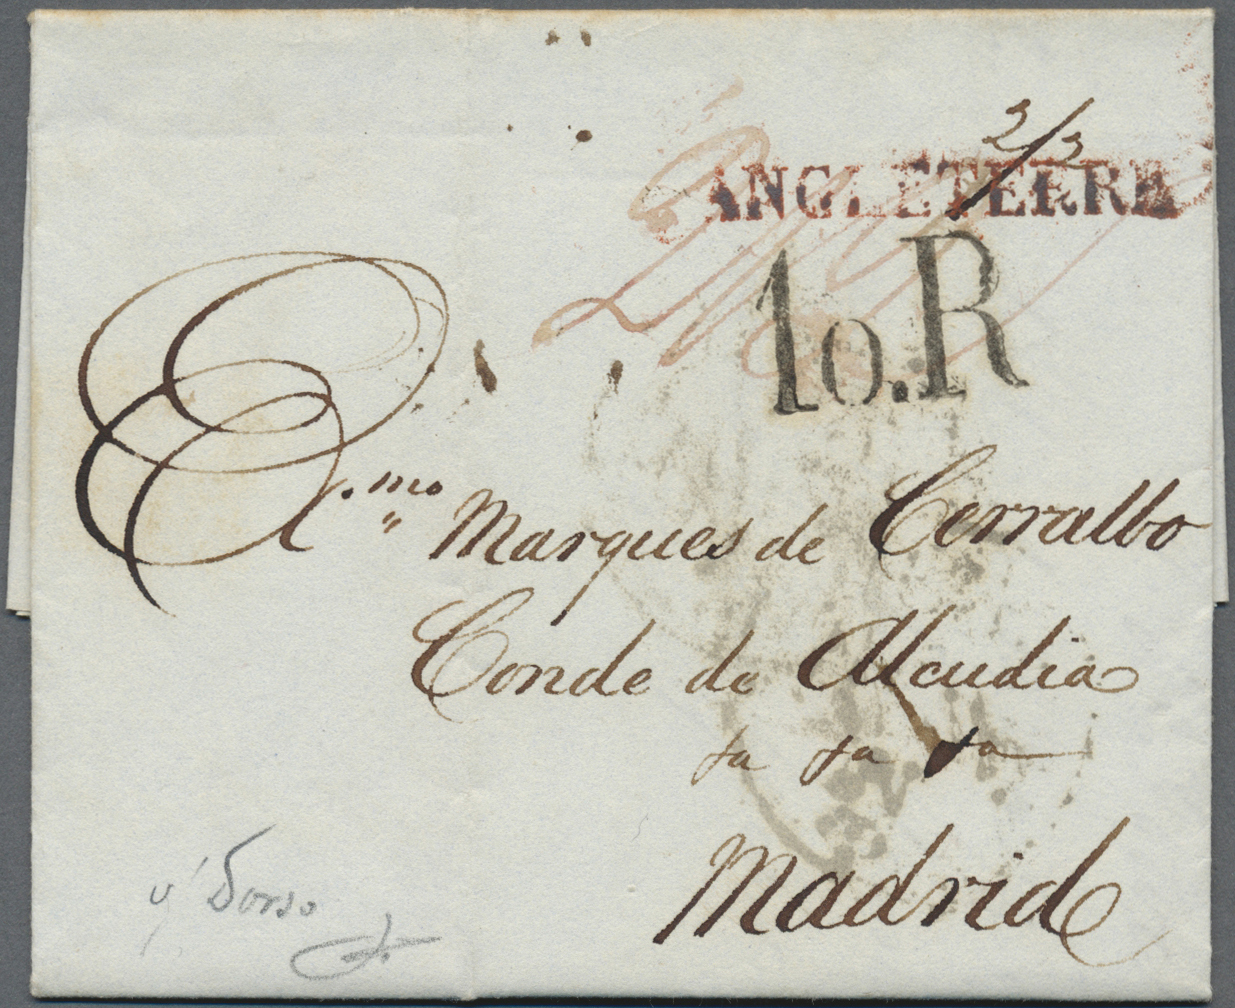 2/3
ANGLETERRA
10.R
Exmo Marques de Cerralbo
Conde de Alcudia
Madrid
Dorso